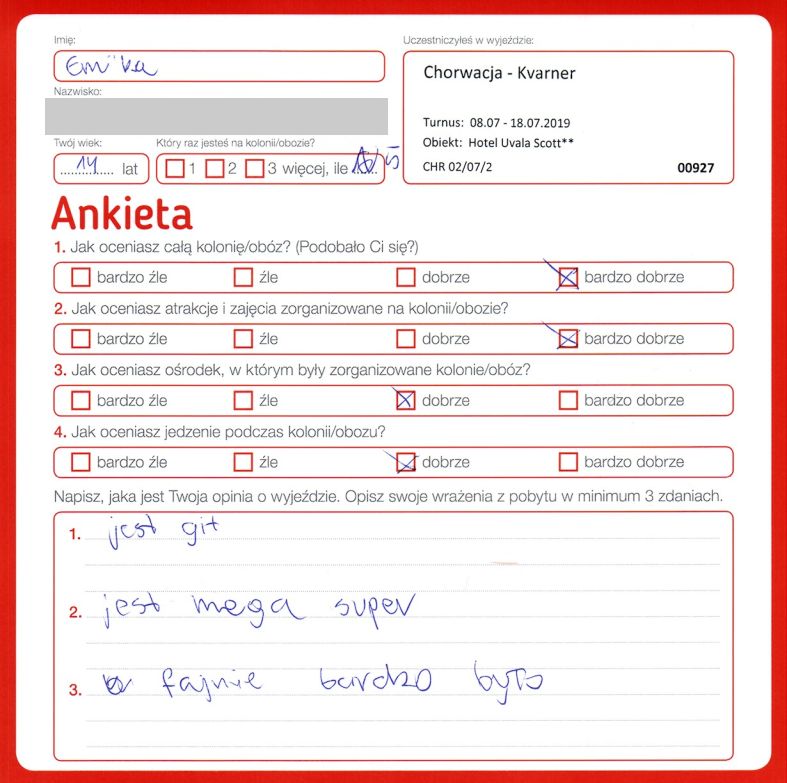 Imię:
Uczestniczyłeś w wyjeździe:
Emilka
Chorwacja - Kvarner
Nazwisko:
Turnus: 08.07 - 18.07.2019
Obiekt: Hotel Uvala Scott**
CHR 02/07/2 00927
Twój wiek: Który raz jesteś na kolonii/obozie?
14 lat 1 2 3 więcej, ile 5
Ankieta
1. Jak oceniasz całą kolonię/obóz? (Podobało Ci się?)
bardzo źle źle dobrze bardzo dobrze
2. Jak oceniasz atrakcje i zajęcia zorganizowane na kolonii/obozie?
bardzo źle źle dobrze bardzo dobrze
3. Jak oceniasz ośrodek, w którym były zorganizowane kolonie/obóz?
bardzo źle źle dobrze bardzo dobrze
4. Jak oceniasz jedzenie podczas kolonii/obozu?
bardzo źle źle dobrze bardzo dobrze
Napisz, jaka jest Twoja opinia o wyjeździe. Opisz swoje wrażenia z pobytu w minimum 3 zdaniach.
1. jest git
2. jest mega super
3. fajnie bardzo było